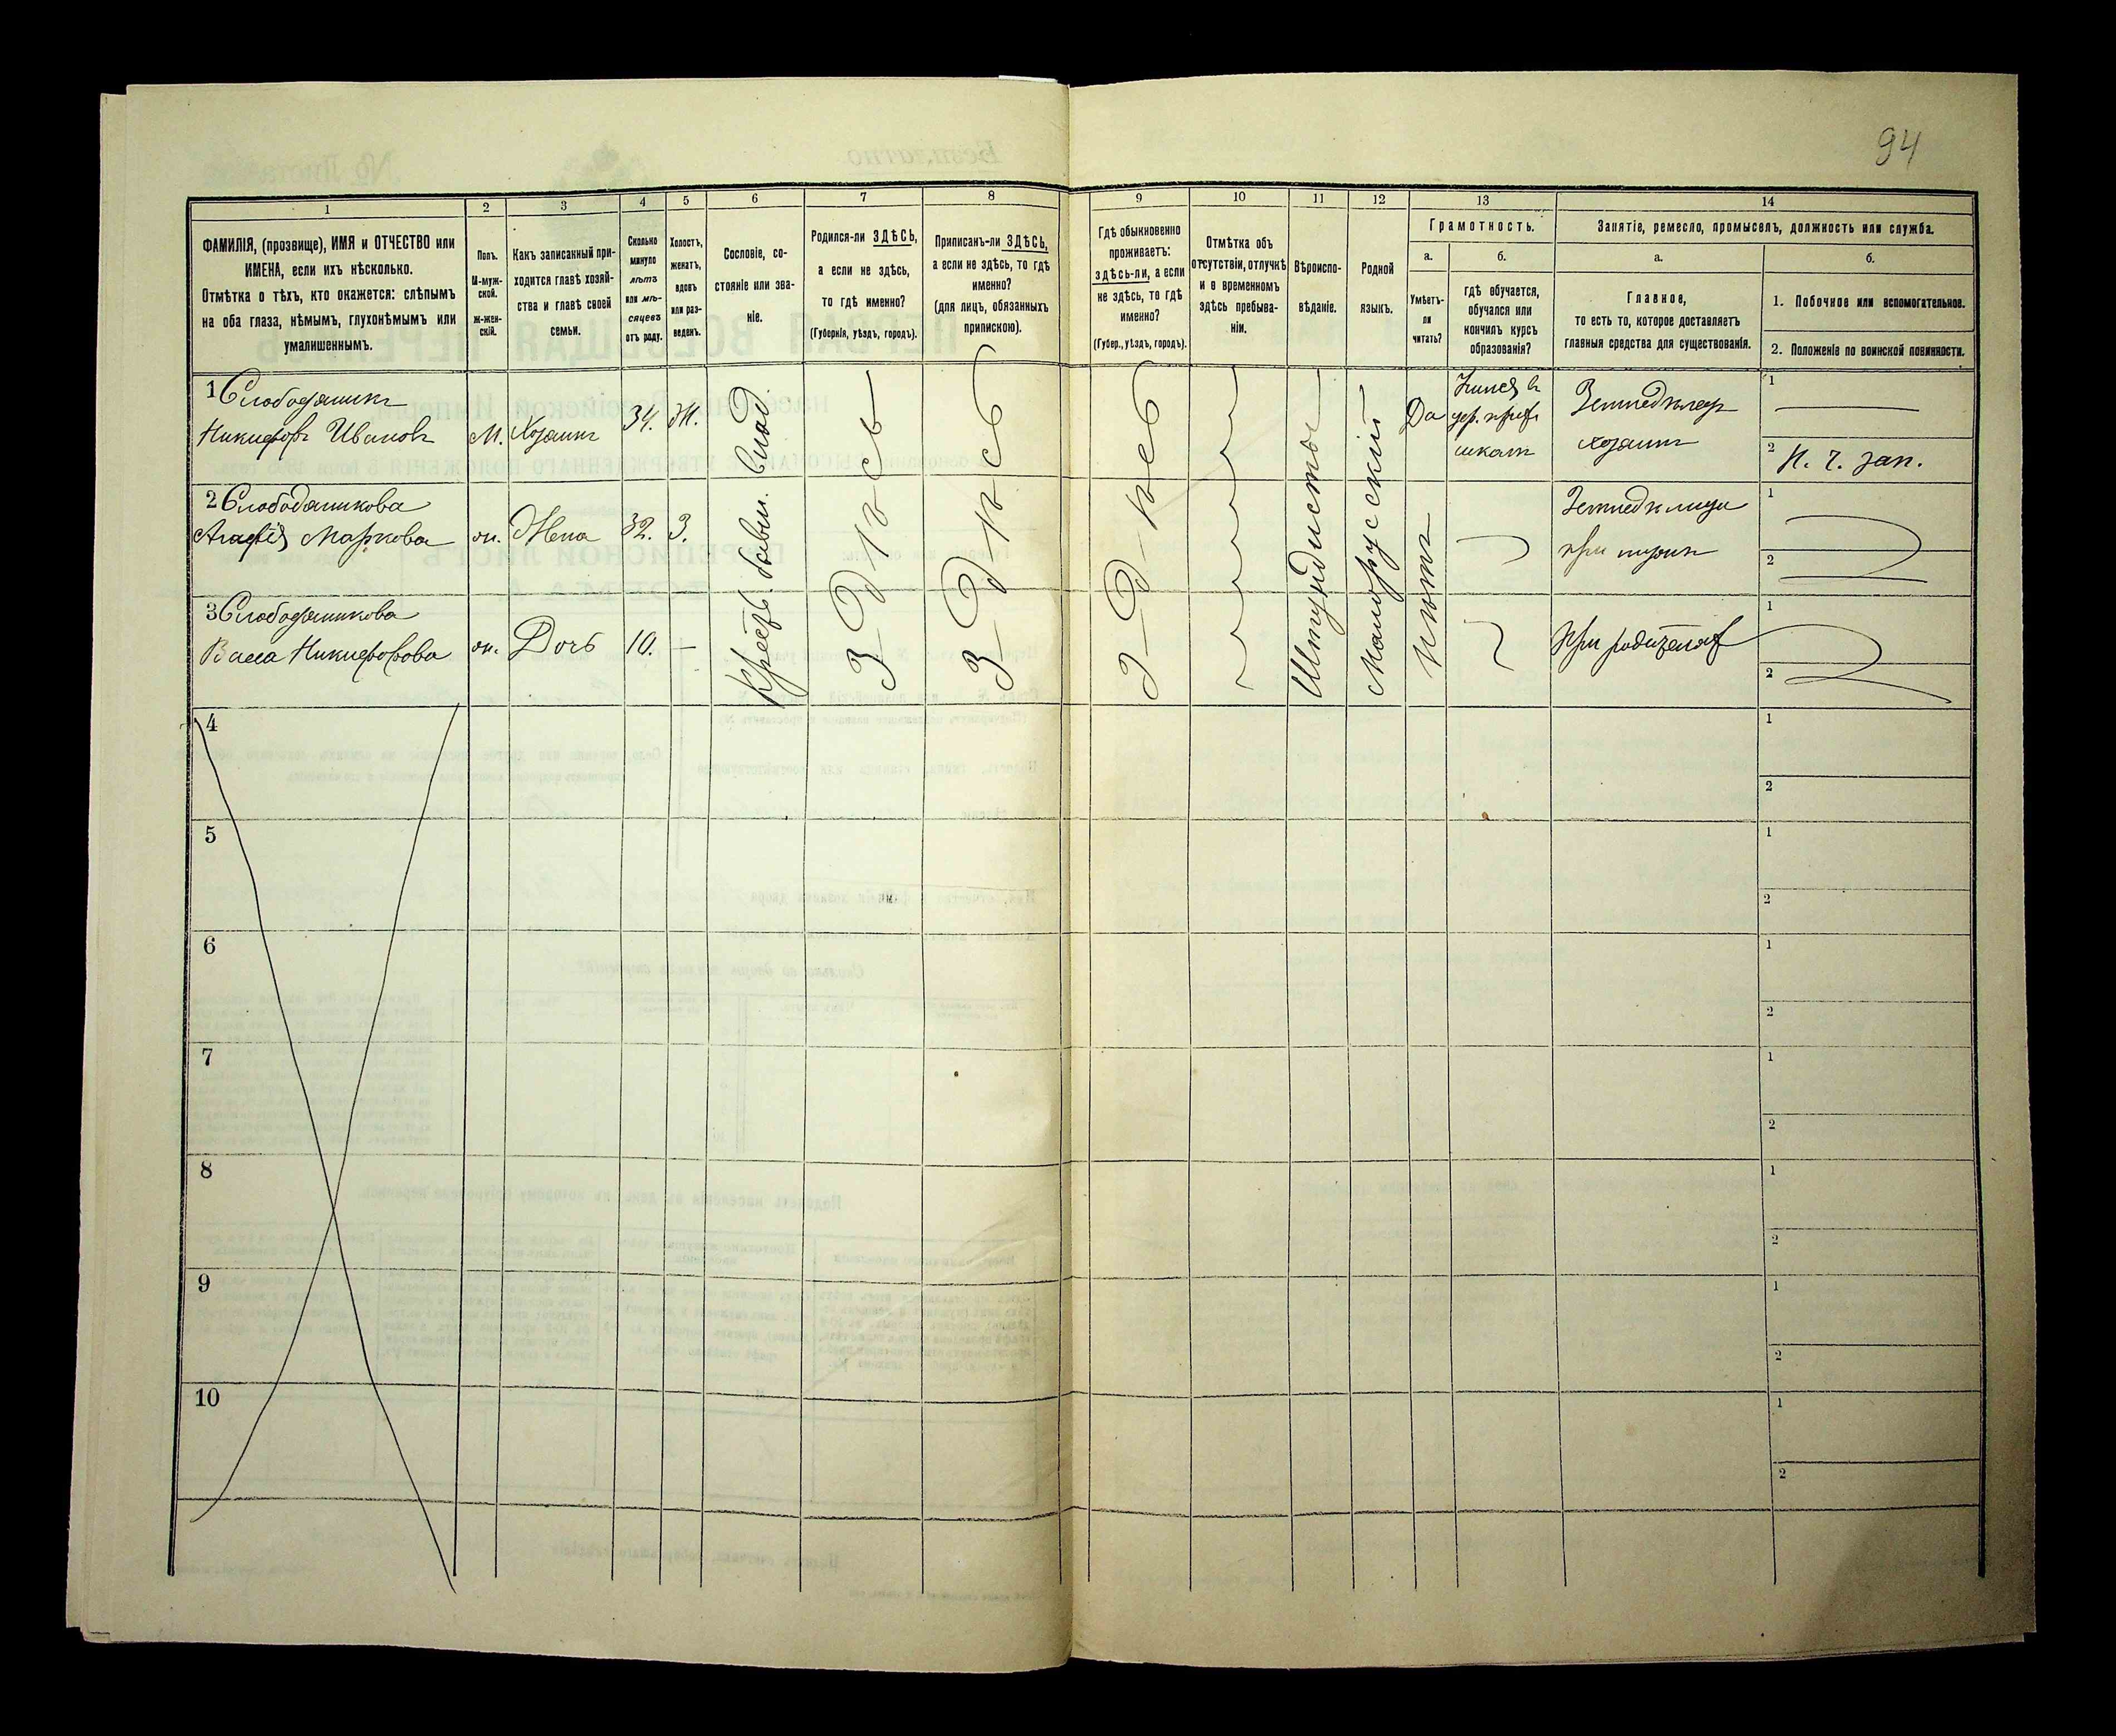 94
1
2
3
4
5
6
7
8
9
10
11
12
13
14
ФАМИЛІЯ, (прозвище), ИМЯ и ОТЧЕСТВО или
ИМЕНА, если ихъ нѣсколько.
Отмѣтка о тѣхъ, кто окажется: слѣпымъ
на оба глаза, нѣмымъ, глухонѣмымъ или
умалишеннымъ.
Полъ.
М-муж-
ской.
ж-жен-
скій.
Какъ записанный при-
ходится главѣ хозяй-
ства и главѣ своей
семьи.
Сколько
минуло
лѣтъ
или мѣ-
сяцевъ
отъ роду.
Холостъ,
женатъ,
вдовъ
или раз-
веденъ.
Сословіе, со-
стояніе или зва-
ніе.
Родился-ли ЗДѢСЬ,
а если не здѣсь,
то гдѣ именно?
(Губернія, уѣздъ, городъ).
Приписанъ-ли ЗДѢСЬ,
а если не здѣсь, то гдѣ
именно?
(для лицъ, обязанныхъ
припискою).
Гдѣ обыкновенно
проживаетъ:
здѣсь-ли, а если
не здѣсь, то гдѣ
именно?
(Губер., уѣздъ, городъ).
Отмѣтка объ
отсутствіи, отлучкѣ
и о временномъ
здѣсь пребыва-
ніи.
Вѣроиспо-
вѣданіе.
Родной
языкъ.
Грамотность.
а.
Умѣетъ-
ли
читать?
б.
гдѣ обучается,
обучался или
кончилъ курсъ
образованія?
Занятіе, ремесло, промыселъ, должность или служба.
а.
Главное,
то есть то, которое доставляетъ
главныя средства для существованія.
б.
1. Побочное или вспомогательное.
2. Положеніе по воинской повинности.
1 Слободяникъ
Никифоръ Ивановъ
М.
Хозяинъ
34.
Ж.
Да
Земледѣлецъ
хозяинъ
1
2 Н. ч. зап.
2 Слободяникова
Агафія Маркова
ж.
Жена
32.
З.
1
2
3 Слободяникова
Васса Никифорова
ж.
Дочь
10.
—
При родителяхъ
1
2
Крест. бывш.
З-д-ѣ-с-ь
З-д-ѣ-с-ь
З-д-ѣ-с-ь
Штундисты
Малорусскій
Нѣтъ
4
1
2
5
1
2
6
1
2
7
1
2
8
1
2
9
1
2
10
1
2